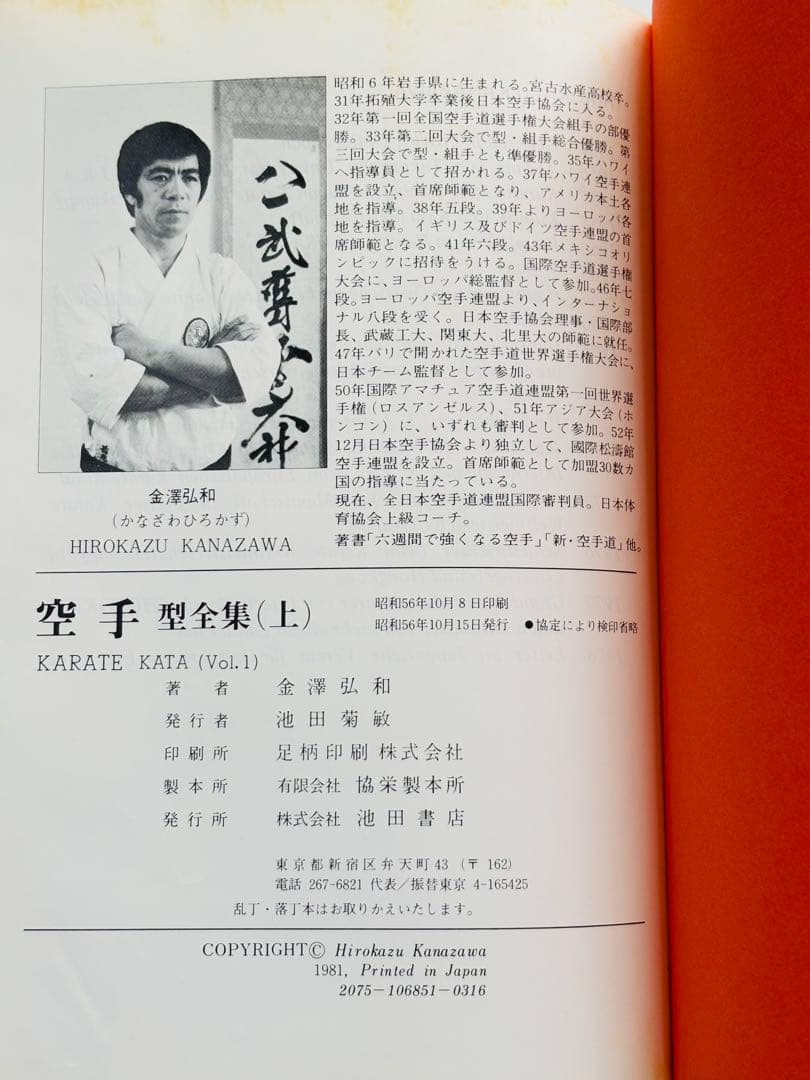 昭和6年岩手県に生まれる。宮古水産高校卒。
31年拓殖大学卒業後日本空手協会に入る。
32年第一回全国空手道選手権大会組手の部優
勝。33年第二回大会で型・組手総合優勝。第
三回大会で型・組手とも準優勝。35年ハワイ
へ指導員として招かれる。37年ハワイ空手連
盟を設立、首席師範となり、アメリカ本土各
地を指導。38年五段。39年よりヨーロッパ各
地を指導。イギリス及びドイツ空手連盟の首
席師範となる。41年六段。43年メキシコオリ
ンピックに招待をうける。国際空手道選手権
大会に、ヨーロッパ総監督として参加。46年七
段。ヨーロッパ空手連盟より、インターナショ
ナル八段を受く。日本空手協会理事・国際部
長、武蔵工大、関東大、北里大の師範に就任。
47年パリで開かれた空手道世界選手権大会に、
日本チーム監督として参加。
50年国際アマチュア空手道連盟第一回世界選
手権(ロスアンゼルス)、51年アジア大会(ホ
ンコン)に、いずれも審判として参加。52年
12月日本空手協会より独立して、國際松濤館
空手連盟を設立。首席師範として加盟30数カ
国の指導に当たっている。
現在、全日本空手道連盟国際審判員。日本体
育協会上級コーチ。
著書「六週間で強くなる空手」「新・空手道」他。
金澤弘和
(かなざわひろかず)
HIROKAZU KANAZAWA
空手 型全集(上)
KARATE KATA (Vol.1)
昭和56年10月8日印刷
昭和56年10月15日発行 ●協定により検印省略
著者 金澤弘和
発行者 池田菊敏
印刷所 足柄印刷株式会社
製本所 有限会社 協栄製本所
発行所 株式会社 池田書店
東京都新宿区弁天町43(〒162)
電話 267-6821 代表／振替東京 4-165425
乱丁・落丁本はお取りかえいたします。
COPYRIGHT© Hirokazu Kanazawa
1981, Printed in Japan
2075-106851-0316